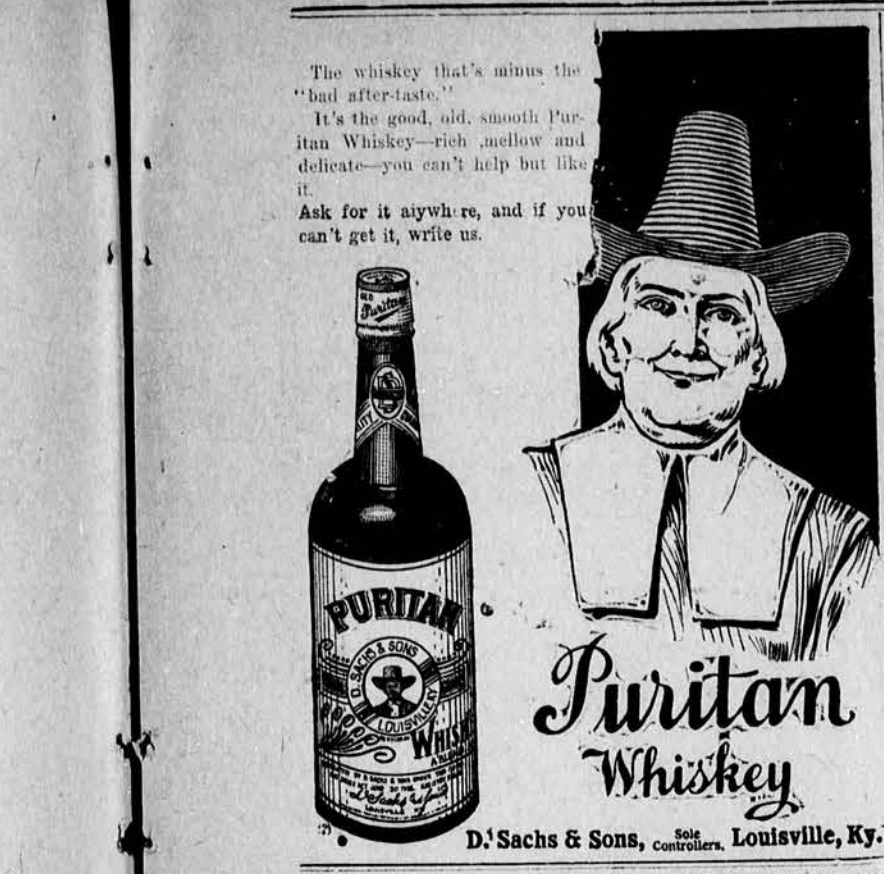 The whiskey that's minus the
"bad after-taste."
It's the good, old, smooth Pur-
itan Whiskey—rich ,mellow and
delicate—you can't help but like
it.
Ask for it aiywhere, and if you
can't get it, write us.
OLD
Puritan
PURITAN
D. SACHS & SONS
LOUISVILLE, KY.
WHISK
D. Sachs & Sons
LOUISVILLE KY.
Puritan
Whiskey
D. Sachs & Sons, Sole Controllers, Louisville, Ky.